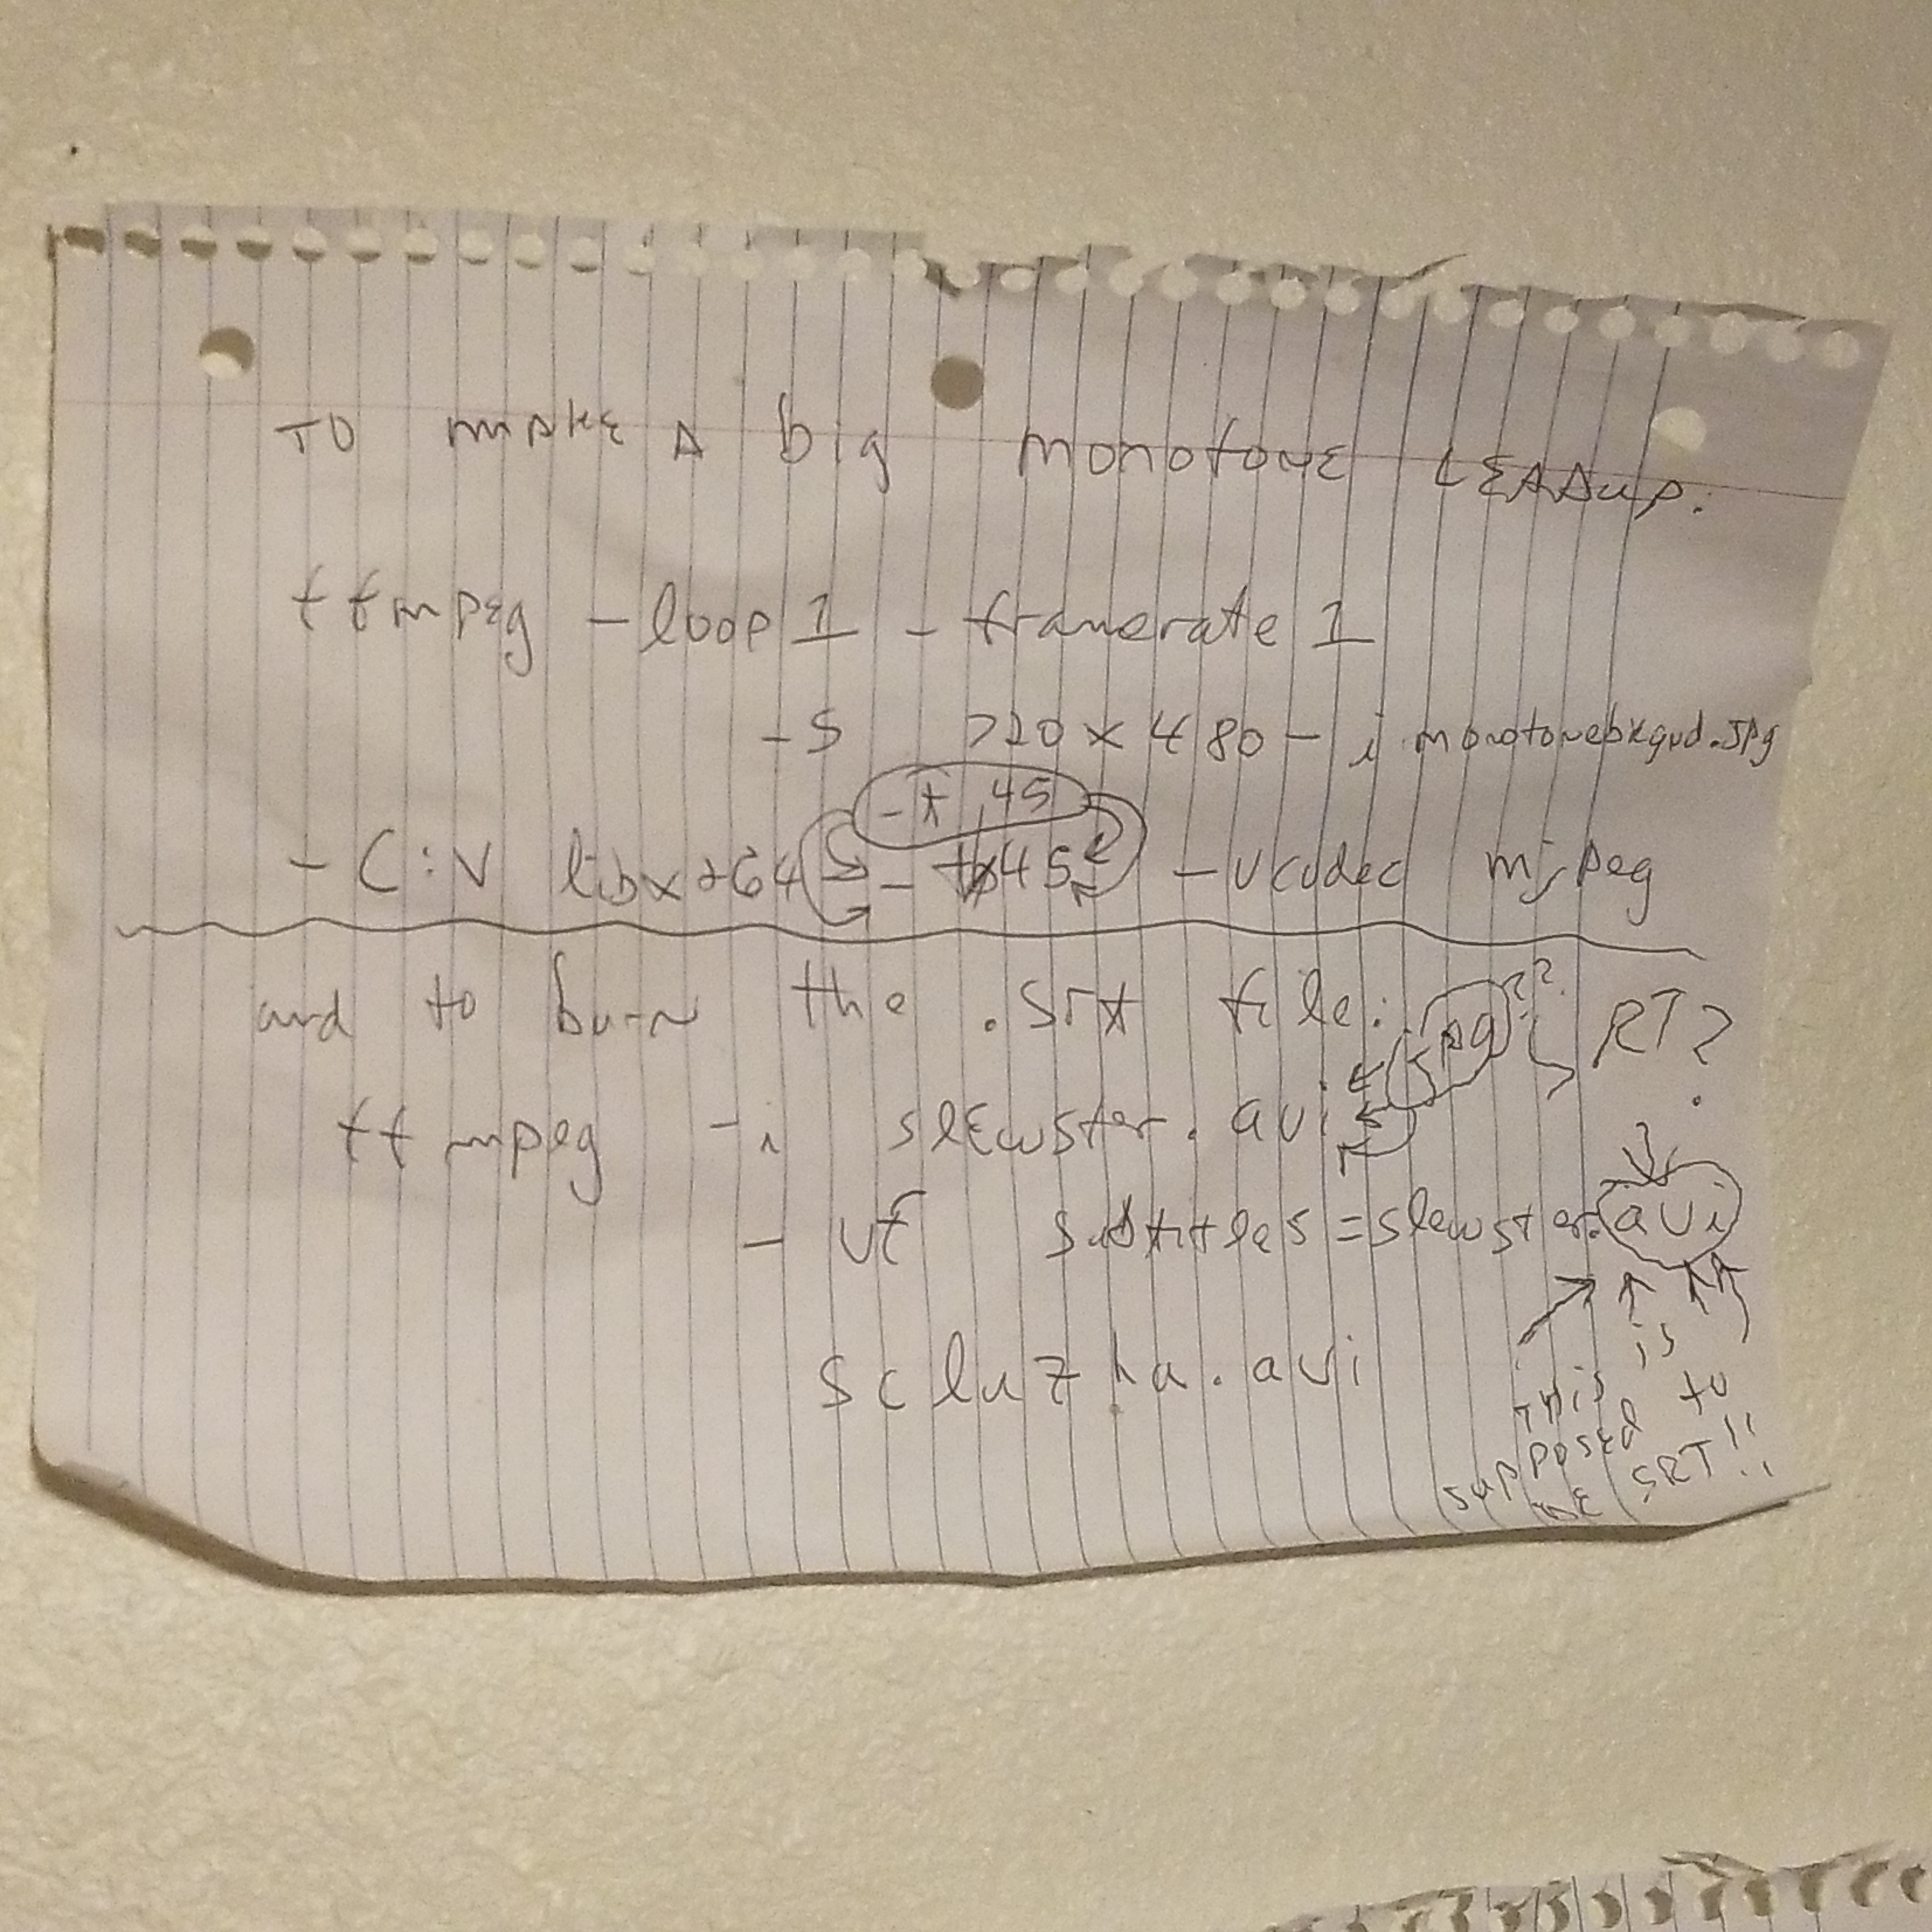 TO mAKE A big monotone LEADup.
ffmpeg -loop 1 - framerate 1
-s 720 x 480 - i monotonebkgud.JPg
-t 45
- C:V libx264 - t 45 - vcodec mjpeg
and to burn the .srt file: JPg?? RT?
ffmpeg -i slewster.avi
- vf subtitles=slewster.avi
scluzha.avi
THis is
supposed to
BE SRT!!